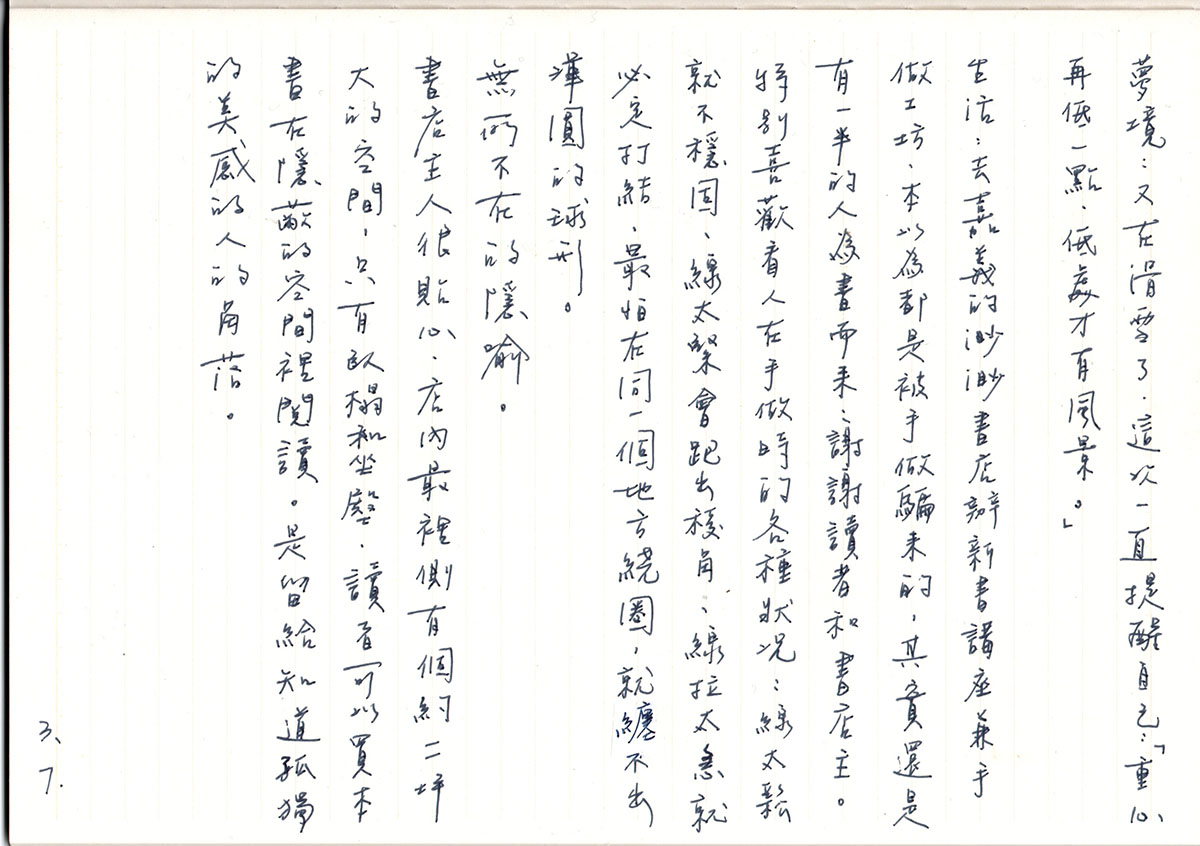 夢境：又在滑雪了．這次一直提醒自己：「重心
再低一點，低處才有風景。」
生活：去嘉義的渺渺書店辦新書講座兼手
做工坊，本以為都是被手做騙來的，其實還是
有一半的人為書而來：謝謝讀者和書店主。
特別喜歡看人在手做時的各種狀況：線太鬆
就不穩固、線太緊會跑出稜角、線拉太急就
必定打結，最怕在同一個地方繞圈，就纏不出
渾圓的球形。
無所不在的隱喻。
書店主人很貼心，店內最裡側有個約二坪
大的空間，只有臥榻和坐墊，讀者可以買本
書在隱蔽的空間裡閱讀。是留給知道孤獨
的美感的人的角落。
3、7.